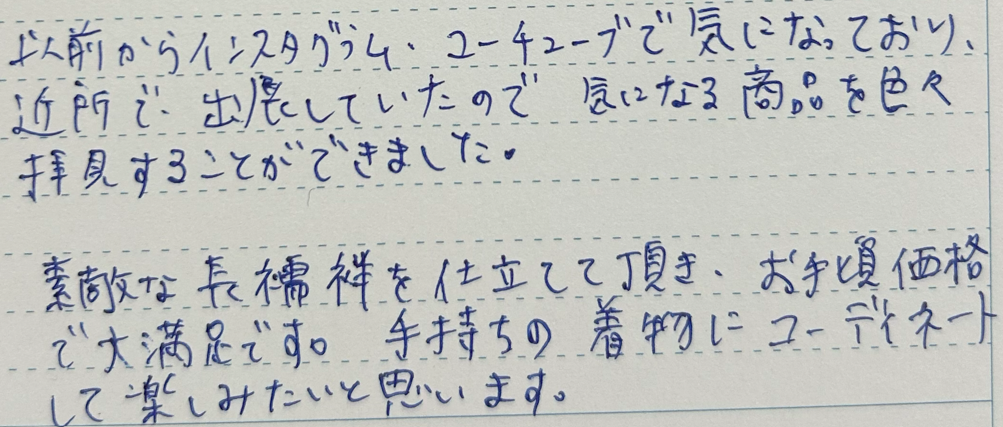 以前からインスタグラム、ユーチューブで気になっており、
近所で、出展していたので 気になる商品を色々
拝見することができました。
素敵な長襦袢を仕立てて頂き、お手頃価格
で大満足です。手持ちの着物にコーディネート
して楽しみたいと思います。